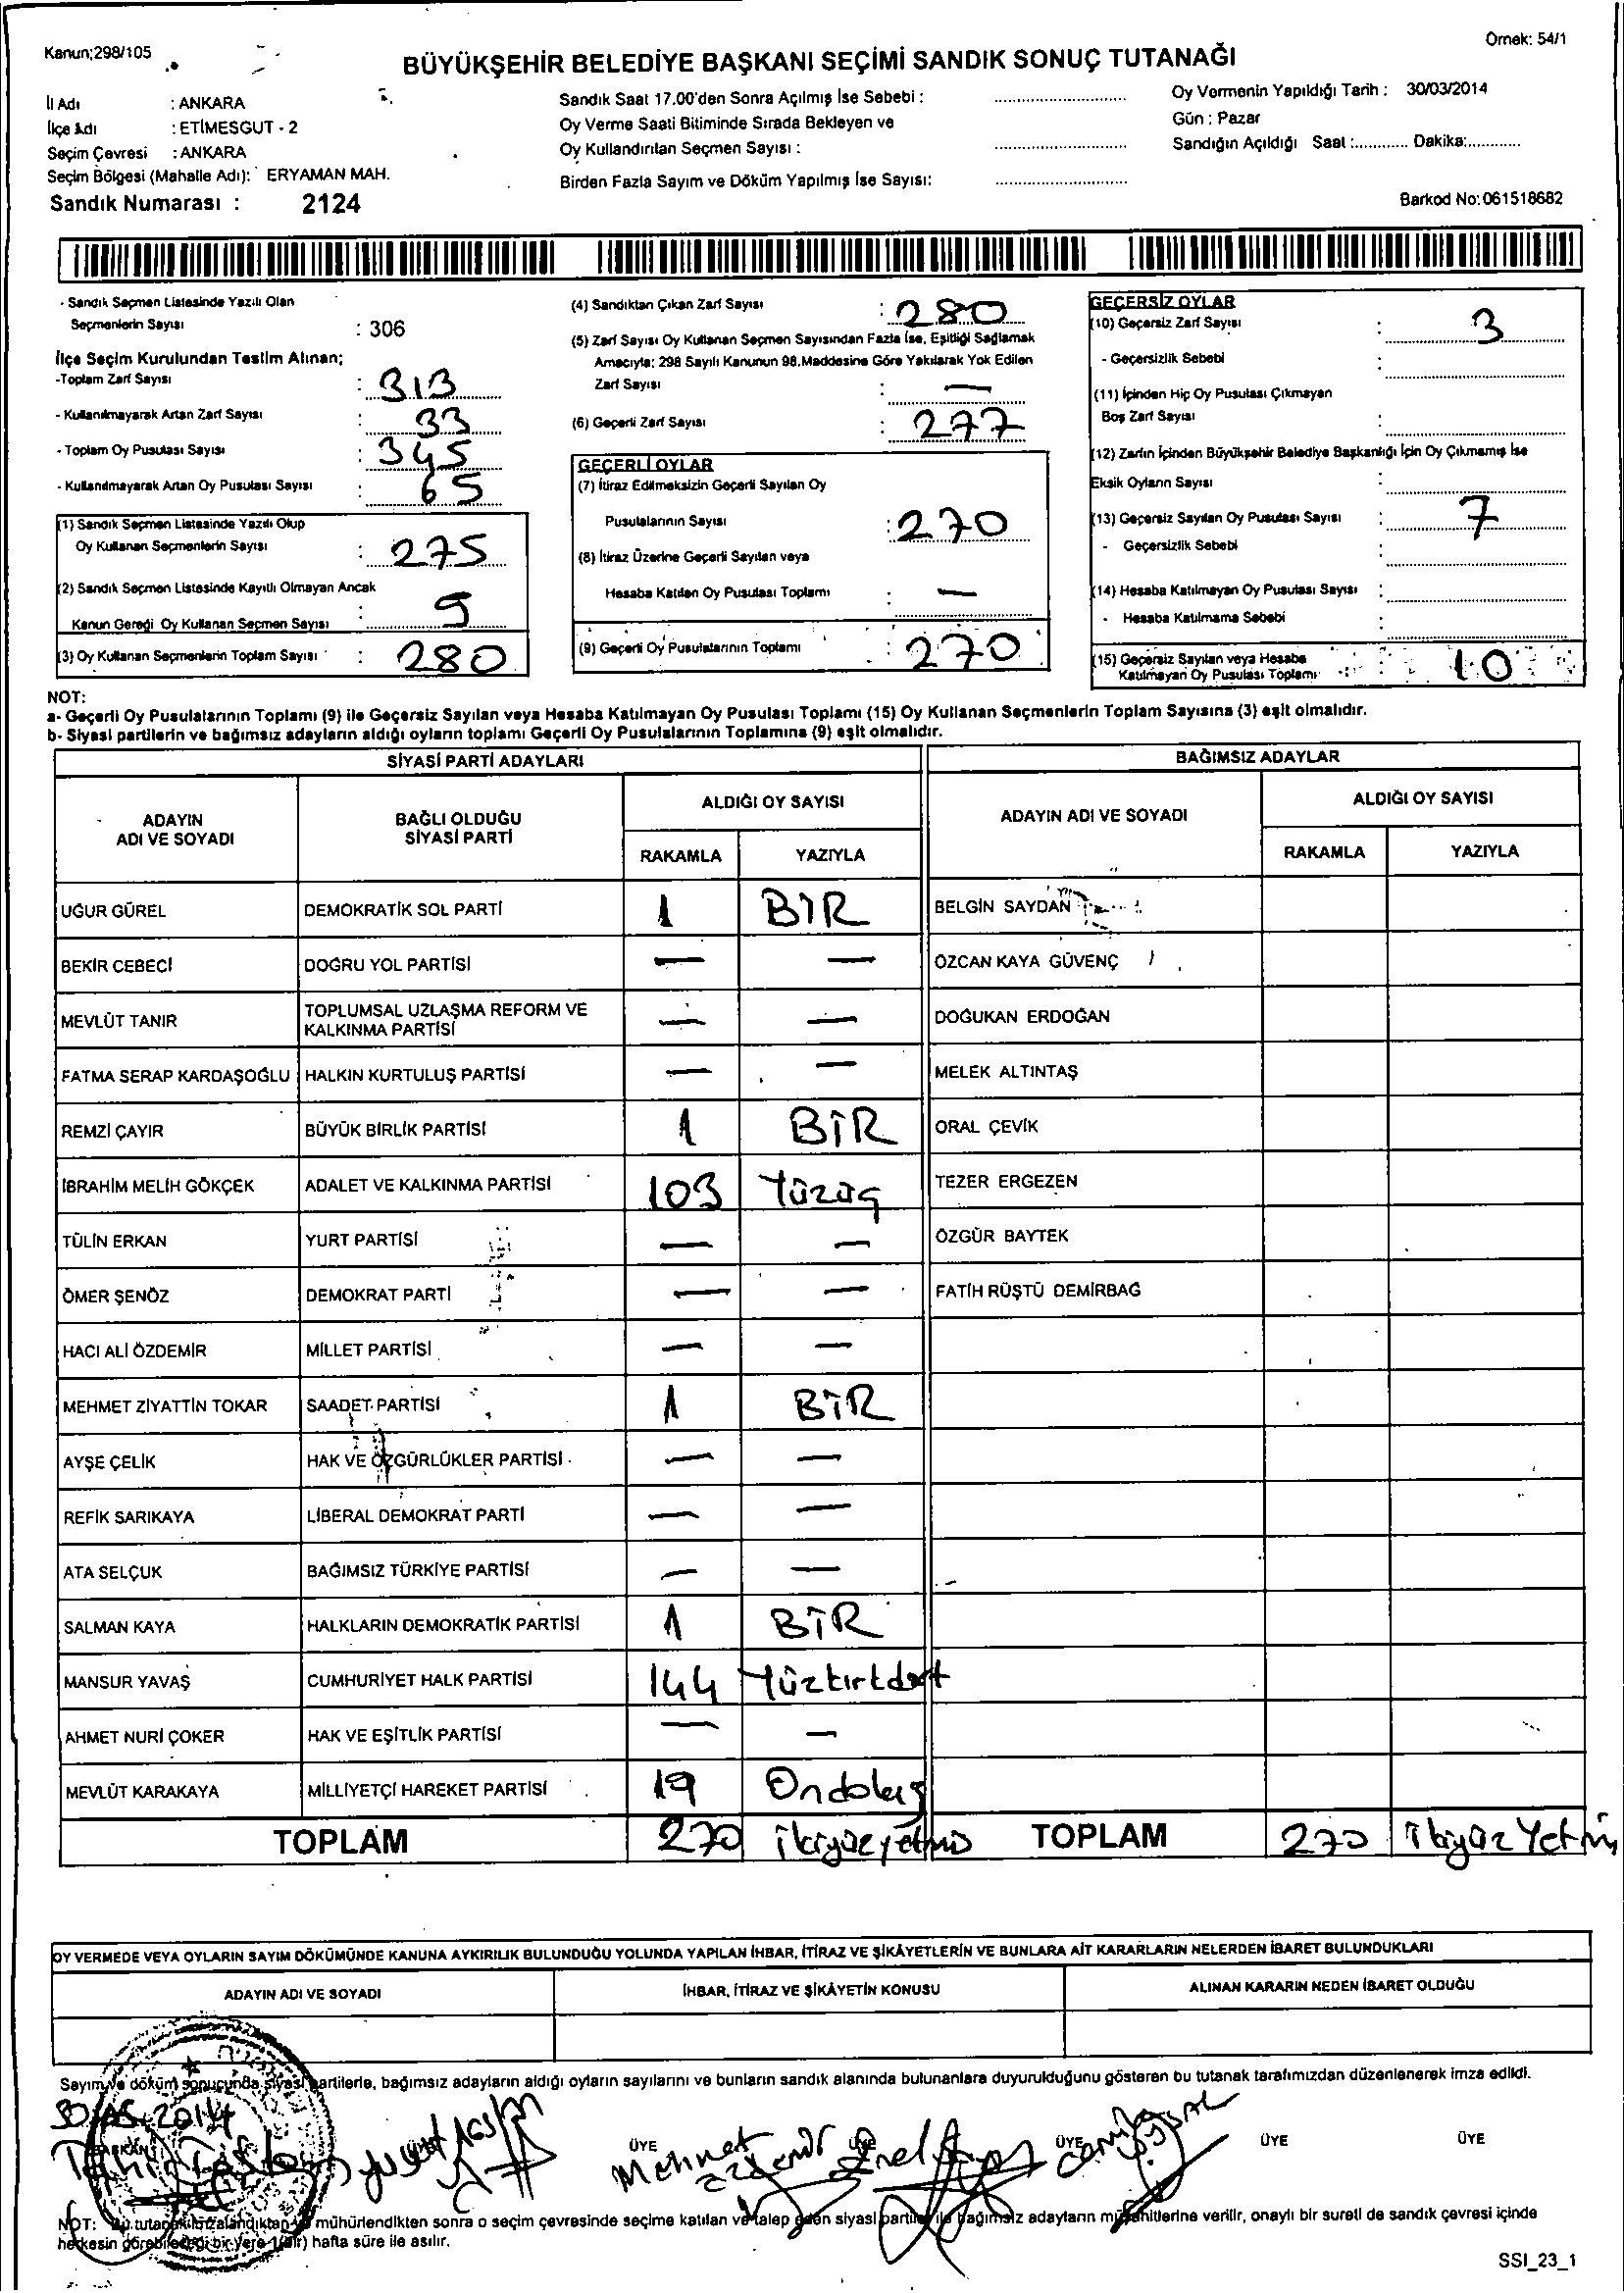 Kanun;298/105
Örnek: 54/1
BÜYÜKŞEHİR BELEDİYE BAŞKANI SEÇİMİ SANDIK SONUÇ TUTANAĞI
İl Adı : ANKARA
İlçe Adı : ETİMESGUT - 2
Seçim Çevresi : ANKARA
Seçim Bölgesi (Mahalle Adı): ERYAMAN MAH.
Sandık Numarası : 2124
Sandık Saat 17.00'den Sonra Açılmış İse Sebebi :
Oy Verme Saati Bitiminde Sırada Bekleyen ve
Oy Kullandırılan Seçmen Sayısı :
Birden Fazla Sayım ve Döküm Yapılmış İse Sayısı:
Oy Vermenin Yapıldığı Tarih : 30/03/2014
Gün : Pazar
Sandığın Açıldığı Saat :............ Dakika:............
Barkod No:061518682
- Sandık Seçmen Listesinde Yazılı Olan
Seçmenlerin Sayısı : 306
İlçe Seçim Kurulundan Teslim Alınan;
-Toplam Zarf Sayısı : 313
- Kullanılmayarak Artan Zarf Sayısı : 33
- Toplam Oy Pusulası Sayısı : 345
- Kullanılmayarak Artan Oy Pusulası Sayısı : 65
(1) Sandık Seçmen Listesinde Yazılı Olup
Oy Kullanan Seçmenlerin Sayısı : 275
(2) Sandık Seçmen Listesinde Kayıtlı Olmayan Ancak
Kanun Gereği Oy Kullanan Seçmen Sayısı : 5
(3) Oy Kullanan Seçmenlerin Toplam Sayısı : 280
(4) Sandıktan Çıkan Zarf Sayısı : 280
(5) Zarf Sayısı Oy Kullanan Seçmen Sayısından Fazla İse, Eşitliği Sağlamak
Amacıyla; 298 Sayılı Kanunun 98.Maddesine Göre Yakılarak Yok Edilen
Zarf Sayısı : —
(6) Geçerli Zarf Sayısı : 277
GEÇERLİ OYLAR
(7) İtiraz Edilmeksizin Geçerli Sayılan Oy
Pusulalarının Sayısı : 270
(8) İtiraz Üzerine Geçerli Sayılan veya
Hesaba Katılan Oy Pusulası Toplamı : —
(9) Geçerli Oy Pusulalarının Toplamı : 270
GEÇERSİZ OYLAR
(10) Geçersiz Zarf Sayısı : 3
- Geçersizlik Sebebi :
(11) İçinden Hiç Oy Pusulası Çıkmayan
Boş Zarf Sayısı :
(12) Zarfın İçinden Büyükşehir Belediye Başkanlığı İçin Oy Çıkmamış İse
Eksik Oyların Sayısı :
(13) Geçersiz Sayılan Oy Pusulası Sayısı : 7
- Geçersizlik Sebebi :
(14) Hesaba Katılmayan Oy Pusulası Sayısı :
- Hesaba Katılmama Sebebi :
(15) Geçersiz Sayılan veya Hesaba
Katılmayan Oy Pusulası Toplamı : 10
NOT:
a- Geçerli Oy Pusulalarının Toplamı (9) ile Geçersiz Sayılan veya Hesaba Katılmayan Oy Pusulası Toplamı (15) Oy Kullanan Seçmenlerin Toplam Sayısına (3) eşit olmalıdır.
b- Siyasi partilerin ve bağımsız adayların aldığı oyların toplamı Geçerli Oy Pusulalarının Toplamına (9) eşit olmalıdır.
SİYASİ PARTİ ADAYLARI
BAĞIMSIZ ADAYLAR
ADAYIN ADI VE SOYADI
BAĞLI OLDUĞU SİYASİ PARTİ
ALDIĞI OY SAYISI
RAKAMLA YAZIYLA
ADAYIN ADI VE SOYADI
ALDIĞI OY SAYISI
RAKAMLA YAZIYLA
UĞUR GÜREL DEMOKRATİK SOL PARTİ 1 BİR BELGİN SAYDAN
BEKİR CEBECİ DOĞRU YOL PARTİSİ — — ÖZCAN KAYA GÜVENÇ
MEVLÜT TANIR TOPLUMSAL UZLAŞMA REFORM VE KALKINMA PARTİSİ — — DOĞUKAN ERDOĞAN
FATMA SERAP KARDAŞOĞLU HALKIN KURTULUŞ PARTİSİ — — MELEK ALTINTAŞ
REMZİ ÇAYIR BÜYÜK BİRLİK PARTİSİ 1 BİR ORAL ÇEVİK
İBRAHİM MELİH GÖKÇEK ADALET VE KALKINMA PARTİSİ 103 Yüzüç TEZER ERGEZEN
TÜLİN ERKAN YURT PARTİSİ — — ÖZGÜR BAYTEK
ÖMER ŞENÖZ DEMOKRAT PARTİ — — FATİH RÜŞTÜ DEMİRBAĞ
HACI ALİ ÖZDEMİR MİLLET PARTİSİ — —
MEHMET ZİYATTİN TOKAR SAADET PARTİSİ 1 BİR
AYŞE ÇELİK HAK VE ÖZGÜRLÜKLER PARTİSİ — —
REFİK SARIKAYA LİBERAL DEMOKRAT PARTİ — —
ATA SELÇUK BAĞIMSIZ TÜRKİYE PARTİSİ — —
SALMAN KAYA HALKLARIN DEMOKRATİK PARTİSİ 1 BİR
MANSUR YAVAŞ CUMHURİYET HALK PARTİSİ 144 Yüzkırkdört
AHMET NURİ ÇOKER HAK VE EŞİTLİK PARTİSİ — —
MEVLÜT KARAKAYA MİLLİYETÇİ HAREKET PARTİSİ 19 Ondokuz
TOPLAM 270 ikiyüzyetmiş TOPLAM 270 ikiyüz Yetmiş
OY VERMEDE VEYA OYLARIN SAYIM DÖKÜMÜNDE KANUNA AYKIRILIK BULUNDUĞU YOLUNDA YAPILAN İHBAR, İTİRAZ VE ŞİKÂYETLERİN VE BUNLARA AİT KARARLARIN NELERDEN İBARET BULUNDUKLARI
ADAYIN ADI VE SOYADI İHBAR, İTİRAZ VE ŞİKÂYETİN KONUSU ALINAN KARARIN NEDEN İBARET OLDUĞU
Sayım ve döküm sonucunda siyasi partilerle, bağımsız adayların aldığı oyların sayılarını ve bunların sandık alanında bulunanlara duyurulduğunu gösteren bu tutanak tarafımızdan düzenlenerek imza edildi.
BAŞKAN ÜYE ÜYE ÜYE ÜYE ÜYE
Mehmet
NOT: Bu tutanak imzalandıktan ve mühürlendikten sonra o seçim çevresinde seçime katılan ve talep eden siyasi partiler ile bağımsız adayların müşahitlerine verilir, onaylı bir sureti de sandık çevresi içinde
herkesin görebileceği bir yere 1(Bir) hafta süre ile asılır.
SSI_23_1